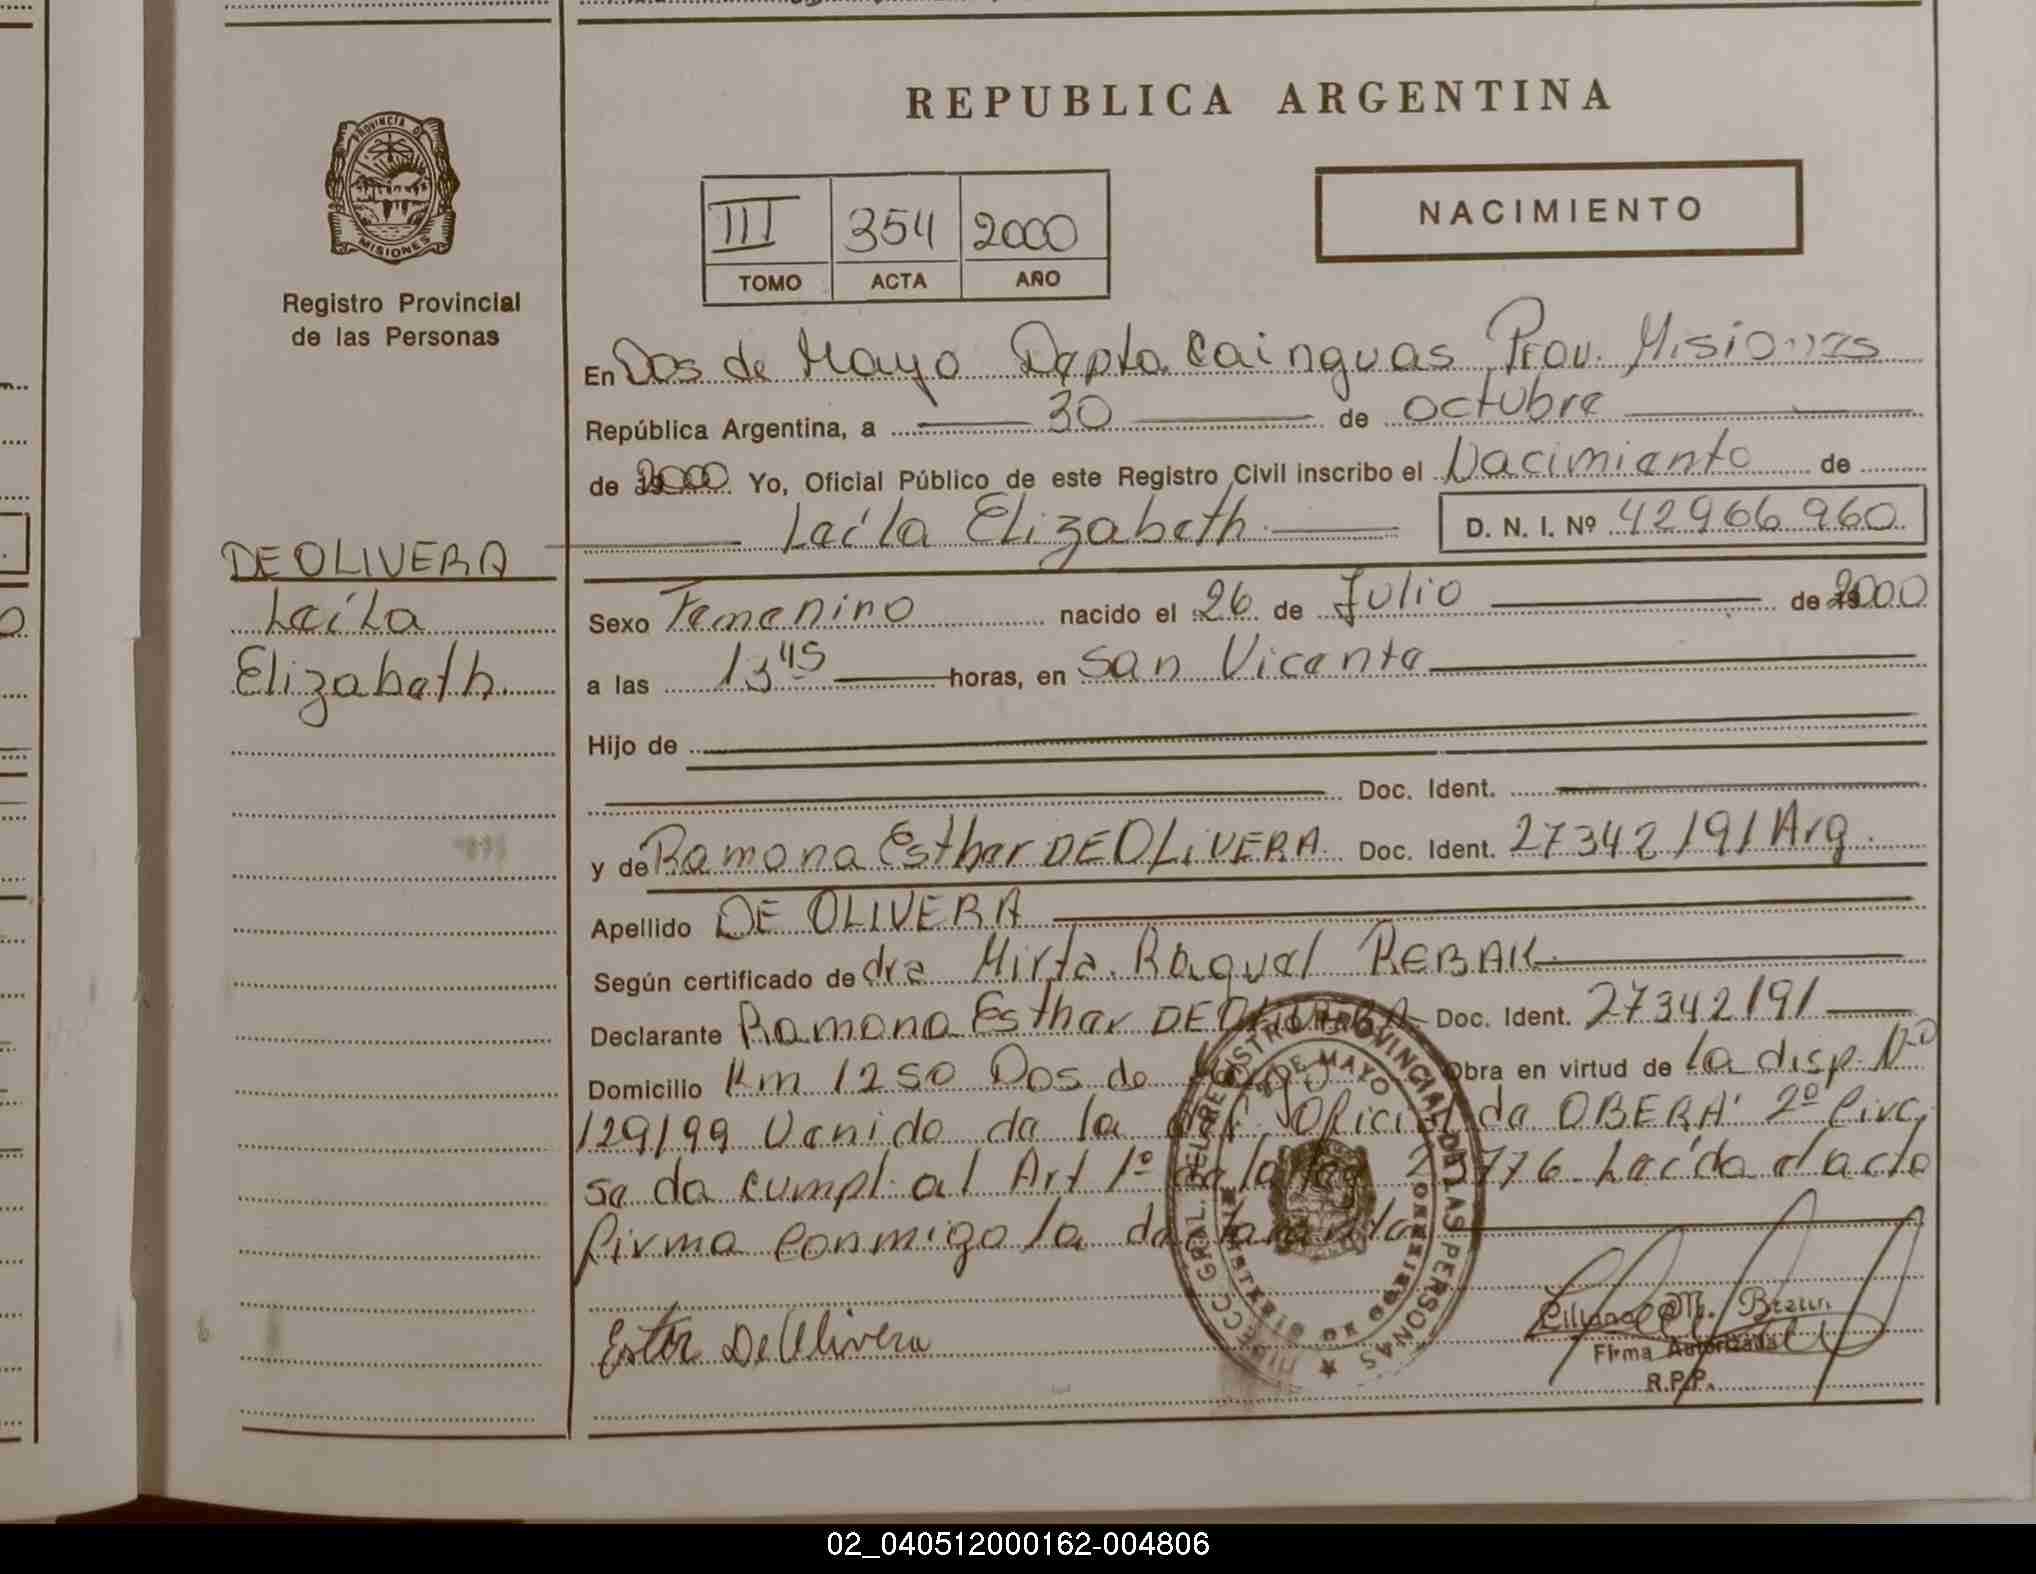 REPUBLICA ARGENTINA
PROVINCIA D
MISIONES
Registro Provincial
de las Personas
III 354 2000
TOMO ACTA AÑO
NACIMIENTO
En Dos de Mayo Depto Cainguas Prov. Misiones
República Argentina, a 30 de octubre
de 2000 Yo, Oficial Público de este Registro Civil inscribo el Nacimiento de
Leíla Elizabeth D. N. I. Nº 42966960
DE OLIVERA
Leíla
Elizabeth
Sexo Femenino nacido el 26 de Julio de 2000
a las 13 45 horas, en San Vicente
Hijo de
Doc. Ident.
y de Ramona Esther DE OLIVERA Doc. Ident. 27342191 Arg.
Apellido DE OLIVERA
Según certificado de dra Mirta Raquel REBAK
Declarante Ramona Esther DE OLIVERA Doc. Ident. 27342191
Domicilio Km 1250 Dos de Mayo Obra en virtud de la disp. Nº
129/99 Venido de la Oficial de OBERA 2º Circ.
se da cumpl. al Art 1º de la ley Leída el acta
firma conmigo la declarante
DIRECC. GRAL. DEL REGISTRO PROVINCIAL DE LAS PERSONAS
2 DE MAYO
MINISTERIO DE GOBIERNO
Ester De Olivera
Liliana M. Braun
Firma Autorizada
R.P.P.
02_040512000162-004806